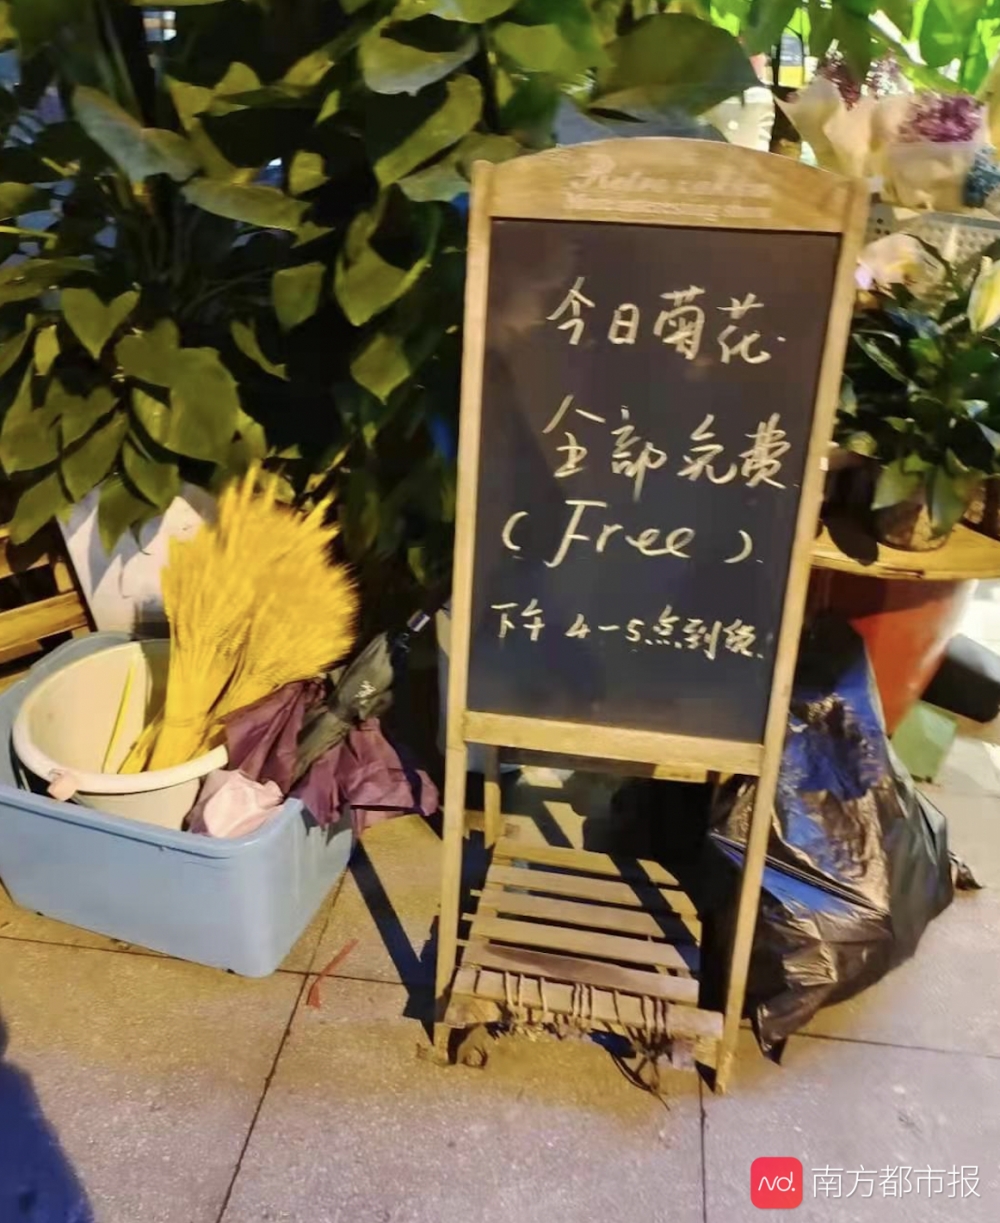 今日菊花
全部免费
(Free)
下午 4-5点到货
nd. 南方都市报